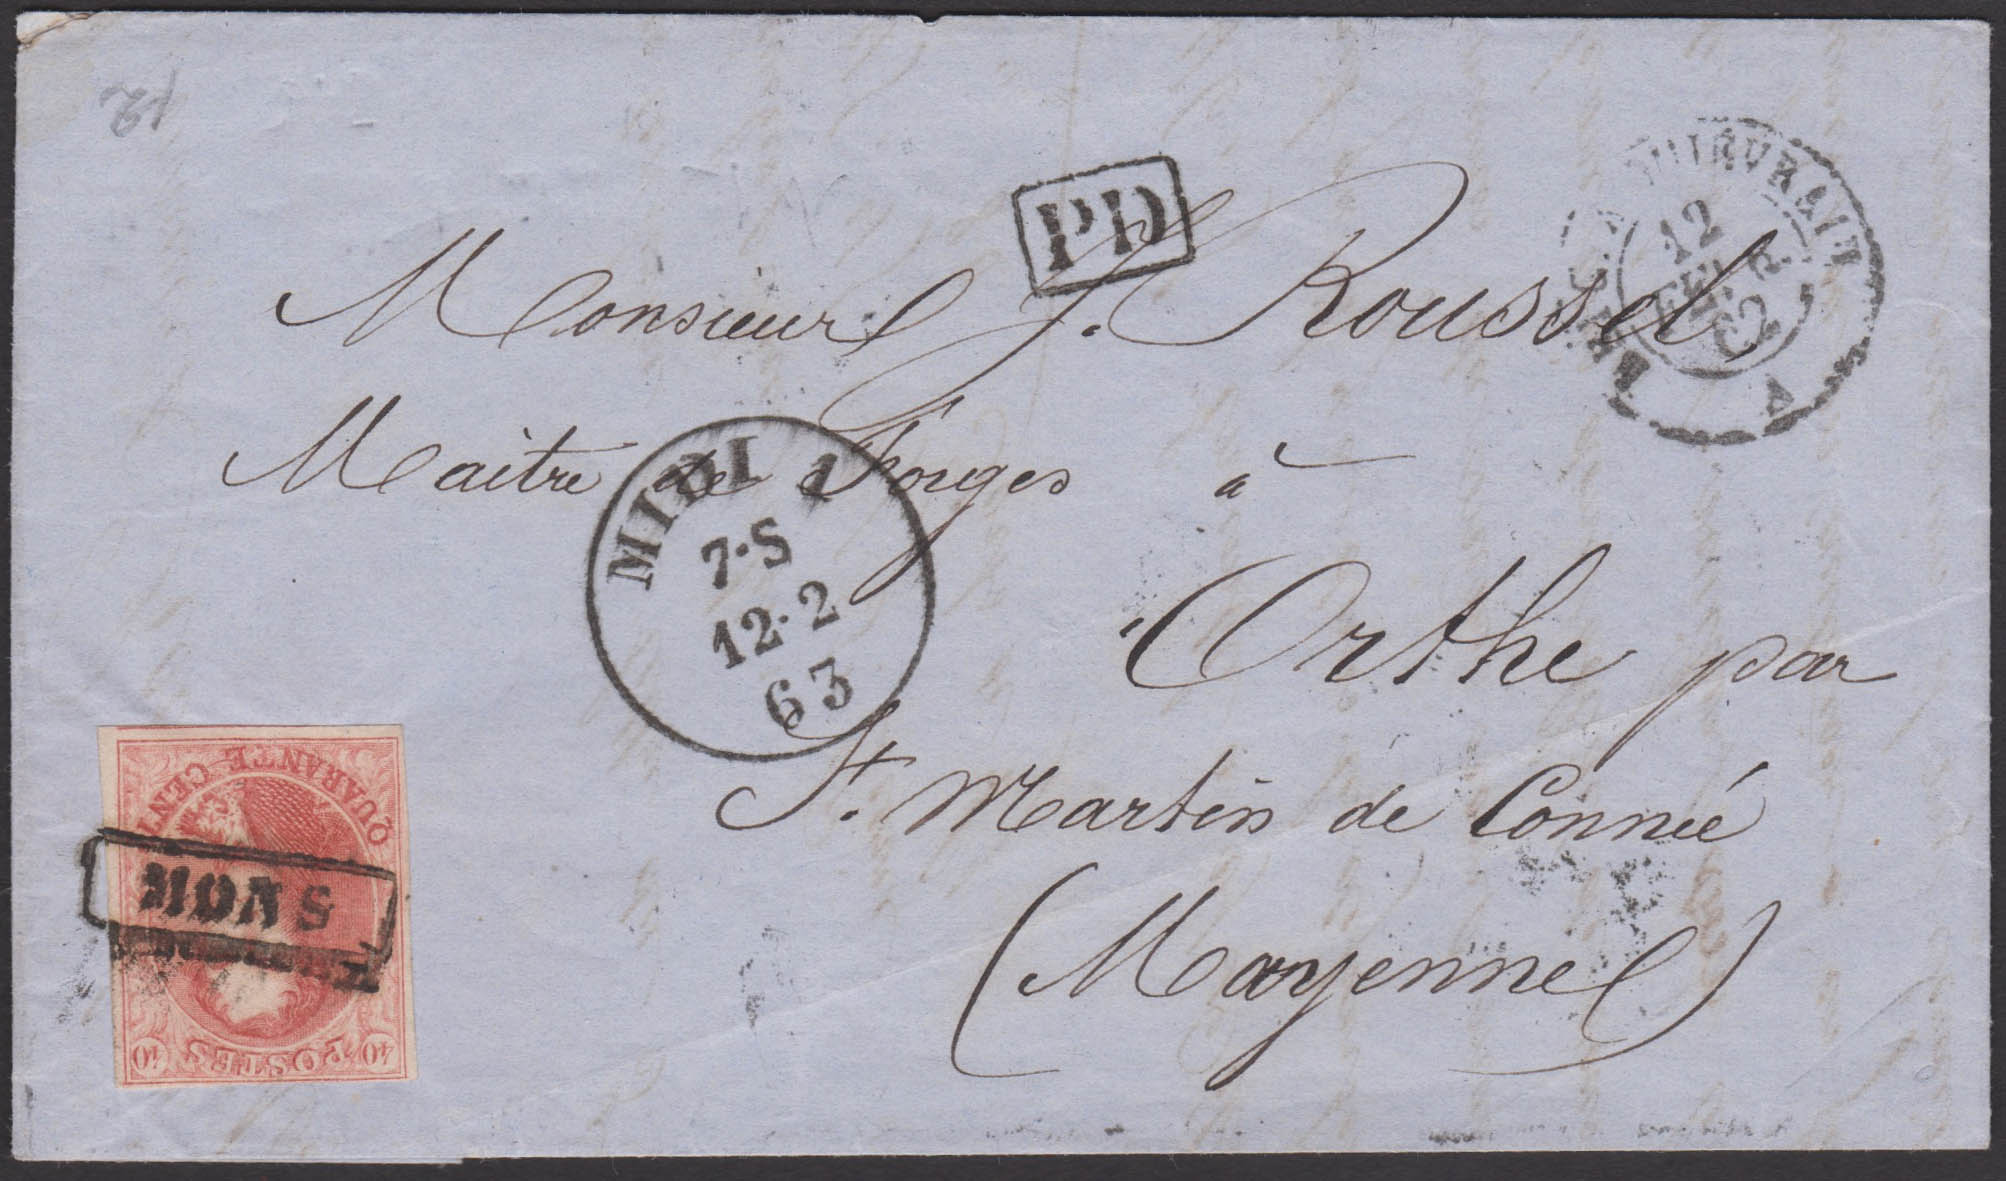 12
PD
12
FEVR.
62
Monsieur J. Roussel,
MIDI 1
7·S
12·2
63
Maitre de Forges à
Orthe par
St. Martin de Connée
(Mayenne)
QUARANTE CENT
MONS
POSTES
40 40